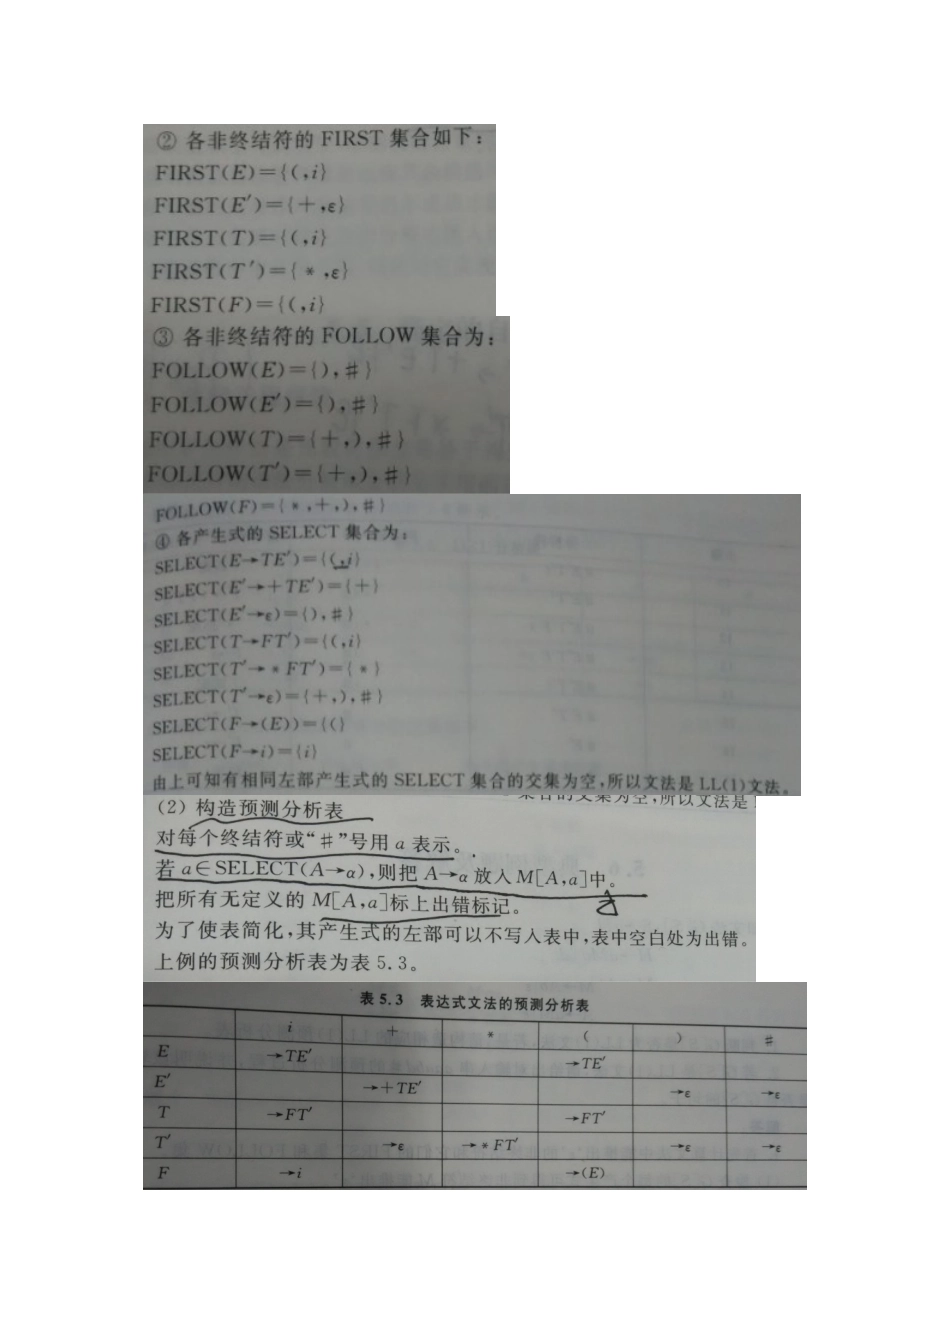 ② 各非终结符的 FIRST 集合如下：
FIRST(E)={(,i}
FIRST(E′)={+,ε}
FIRST(T)={(,i}
FIRST(T′)={*,ε}
FIRST(F)={(,i}
③ 各非终结符的 FOLLOW 集合为：
FOLLOW(E)={),#}
FOLLOW(E′)={),#}
FOLLOW(T)={+,),#}
FOLLOW(T′)={+,),#}
FOLLOW(F)={*,+,),#}
④ 各产生式的 SELECT 集合为：
SELECT(E→TE′)={(,i}
SELECT(E′→+TE′)={+}
SELECT(E′→ε)={),#}
SELECT(T→FT′)={(,i}
SELECT(T′→*FT′)={*}
SELECT(T′→ε)={+,),#}
SELECT(F→(E))={(}
SELECT(F→i)={i}
由上可知有相同左部产生式的 SELECT 集合的交集为空,所以文法是 LL(1)文法。
集合的交集为空,所以文法是
(2) 构造预测分析表
对每个终结符或“#”号用 a 表示。
若 a∈SELECT(A→α),则把 A→α 放入 M[A,a]中。
把所有无定义的 M[A,a]标上出错标记。
为了使表简化,其产生式的左部可以不写入表中,表中空白处为出错。
上例的预测分析表为表 5.3。
表 5.3 表达式文法的预测分析表
i + * ( ) #
E →TE′ →TE′
E′ →+TE′ →ε →ε
T →FT′ →FT′
T′ →ε →*FT′ →ε →ε
F →i →(E)